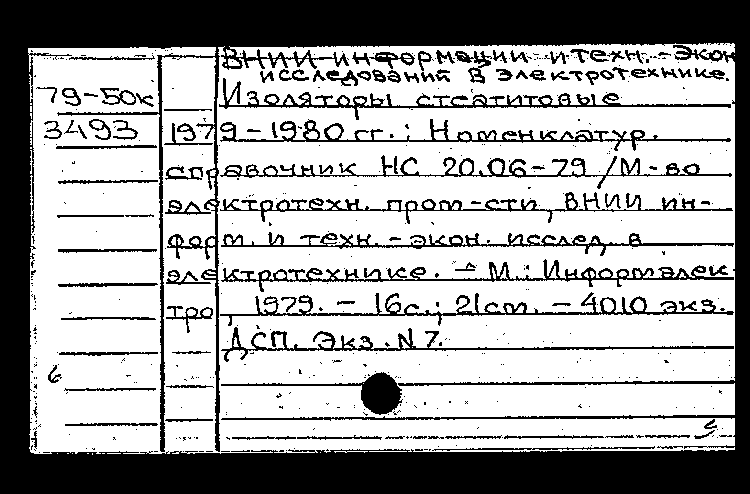 ВНИИ информации и техн.-экон
исследований в электротехнике.
79-50к Изоляторы стеатитовые
3493 1979-1980 гг.: Номенклатур.
справочник НС 20.06-79 /М-во
электротехн. пром-сти, ВНИИ ин-
форм. и техн.-экон. исслед. в
электротехнике. - М.: Информэлек-
тро, 1979. - 16с.; 21см. - 4010 экз.
ДСП. Экз. N 7.
6